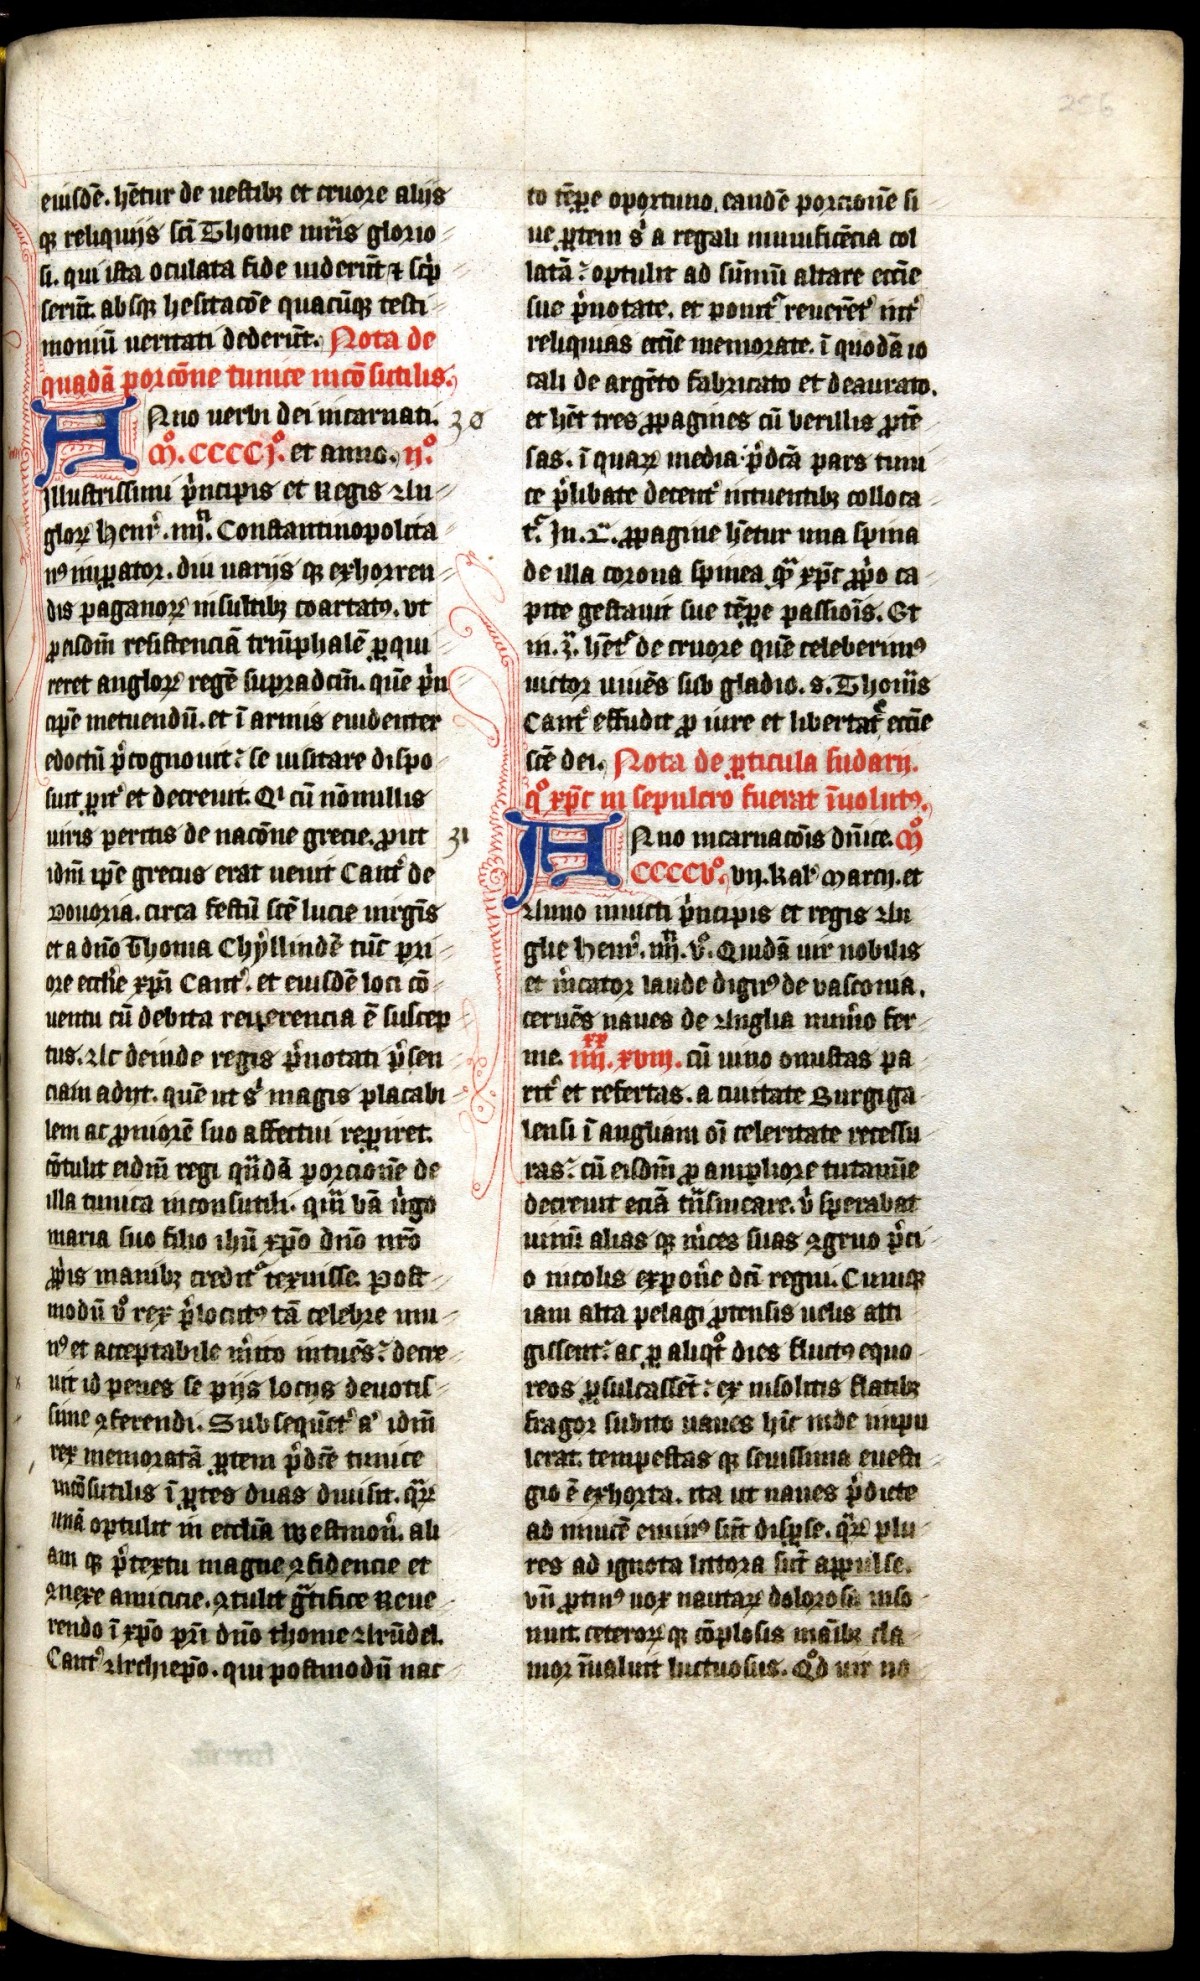 256
eiusdē. hētur de uestibꝫ et cruore alijs
qꝫ reliquijs sc̄i Thome mr̄is glorio
si. qui ista oculata fide uiderūt ⁊ sc̄p
serūt. absqꝫ hesitacōe quacūqꝫ testi
moniū ueritati dederūt. Nota de
quadā porcōne tunice incōsutilis.
ANno uerbi dei incarnati.
30
M̊. CCCCJ̊. et anno. ij̊.
illustrissimi p̄ncipis et Regis An
gloꝝ henr̄. iiij. Constantinopolita
nꝰ imꝑator. diu uarijs qꝫ exhorren
dis paganoꝝ insultibꝫ coartatꝰ. vt
ꝓ eisdm̄ resistenciā triūphalē ꝑqui
reret angloꝝ regē supradcm̄. quē p̄n
cipē metuendū. et ī armis euidenter
edoctū p̄cognouit: se uisitare dispo
suit ꝑit̄ et decreuit. Qi cū nōnullis
uiris peritis de nacōne grecie. ꝓut
idm̄ ip̄e grecus erat uenit Cant̄ de
vouoria. circa festū sc̄e lucie uirgīs
et a dn̄o Thoma Chyllindē tūc pri
ore eccl̄ie xp̄i Cant̄. et eiusdē loci cō
uentu cū debita reuerencia ē suscep
tus. Ac deinde regis p̄notati p̄sen
ciam adijt. quē ut s̄ magis placabi
lem ac ꝓniorē suo affectui reꝑiret.
cōtulit eidm̄ regi qn̄dā porcionē de
illa tunica inconsutili. qm̄ bā ūgo
maria suo filio ihū xp̄o dn̄o nr̄o
ꝓpis manibꝫ credit̄ texuisse. Post
modū ū rex p̄locutꝰ tā celebre mu
nꝰ et acceptabile m̄ito intuēs: decre
uit id penes se pijs locis deuotis
sime ꝯferendi. Subsequēt̄ aͬ idm̄
rex memoratā ꝑtem p̄dcē tunice
incōsutilis ī ꝑtes duas diuisit. qꝝ
unā optulit in eccl̄ia westmon̄. ali
am qꝫ p̄textu magne ꝯfidencie et
ꝯnexe amicicie. ꝯtulit gr̄tifice Reue
rendo ī xp̄o pr̄i dn̄o thome Arūdel.
Cant̄ Archiep̄o. qui postmodū nac
to tēꝑe oportuno. eandē porcionē si
ue ꝑtem s̄ a regali munificēcia col
latā: optulit ad sūmū altare eccīe
sue p̄notate. et ponit̄ reuerēt̄ int̄
reliquias eccīe memorate. ī quodā io
cali de argēto fabricato et deaurato.
et hēt tres ꝓpagines cū berillis ꝓtē
sas. ī quaꝝ media p̄dcā pars tuni
ce p̄libate decent̄ intuentibꝫ colloca
t̄. In. 2. ꝓpagine hētur una spina
de illa corona spinea qͣ xp̄c ꝓp̄o ca
pite gestauit sue tēꝑe passiois̄. Et
in. 3. hēt̄ de cruore quē celeberimꝰ
uictor uiuēs sub gladio. s. Thom̄s
Cant̄ effudit ꝓ iure et libertat̄ eccīe
sc̄e dei. Nota de ꝑticula sudarij.
qͦ xp̄c in sepulcro fuerat īuolutꝰ.
31
ANno incarnacōis dn̄ice. M̊
CCCCV̊. vij. kal̄ Marcij. et
Anno inuicti p̄ncipis et regis An
glie henr̄. iiij. v̊. Quidā uir nobilis
et m̄cator laude dignꝰ de vasconia.
cernēs naues de Anglia num̄o fer
me. iiijxx. xviij. cū uino onustas pa
rit̄ et refertas. a ciuitate Burgiga
lensi ī angliam oī celeritate recessu
ras: cū eisdm̄ ꝓ ampliore tutamīe
decreuit eciā tn̄smeare. ū sperabat
uinū alias qꝫ m̄ces suas ꝯgruo p̄ci
o incolis expon̄e dc̄i regni. Cumqꝫ
iam alta pelagi ꝓtensis uelis atti
gissent: ac ꝑ aliqͦt dies fluctꝰ equo
reos ꝑsulcassēt: ex insolitis flatibꝫ
fragor subito naues hīc inde impu
lerat. tempestas qꝫ seuissima euesti
gio ē exhorta. ita ut naues p̄dicte
ad inuicē eminꝰ sūt disꝑse. qꝝ plu
res ad ignota littora sūt appulse.
vn̄ ꝓtinꝰ uox nautaꝝ dolorosa inso
nuit. ceteroꝝ qꝫ cōplosis māibꝫ cla
mor īualuit luctuosus. Qͦd uir no